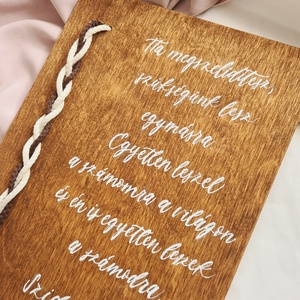 Ha megszelídítesz,
szükségünk lesz
egymásra
Egyetlen leszel
a számomra a világon
és én is egyetlen leszek
a számodra